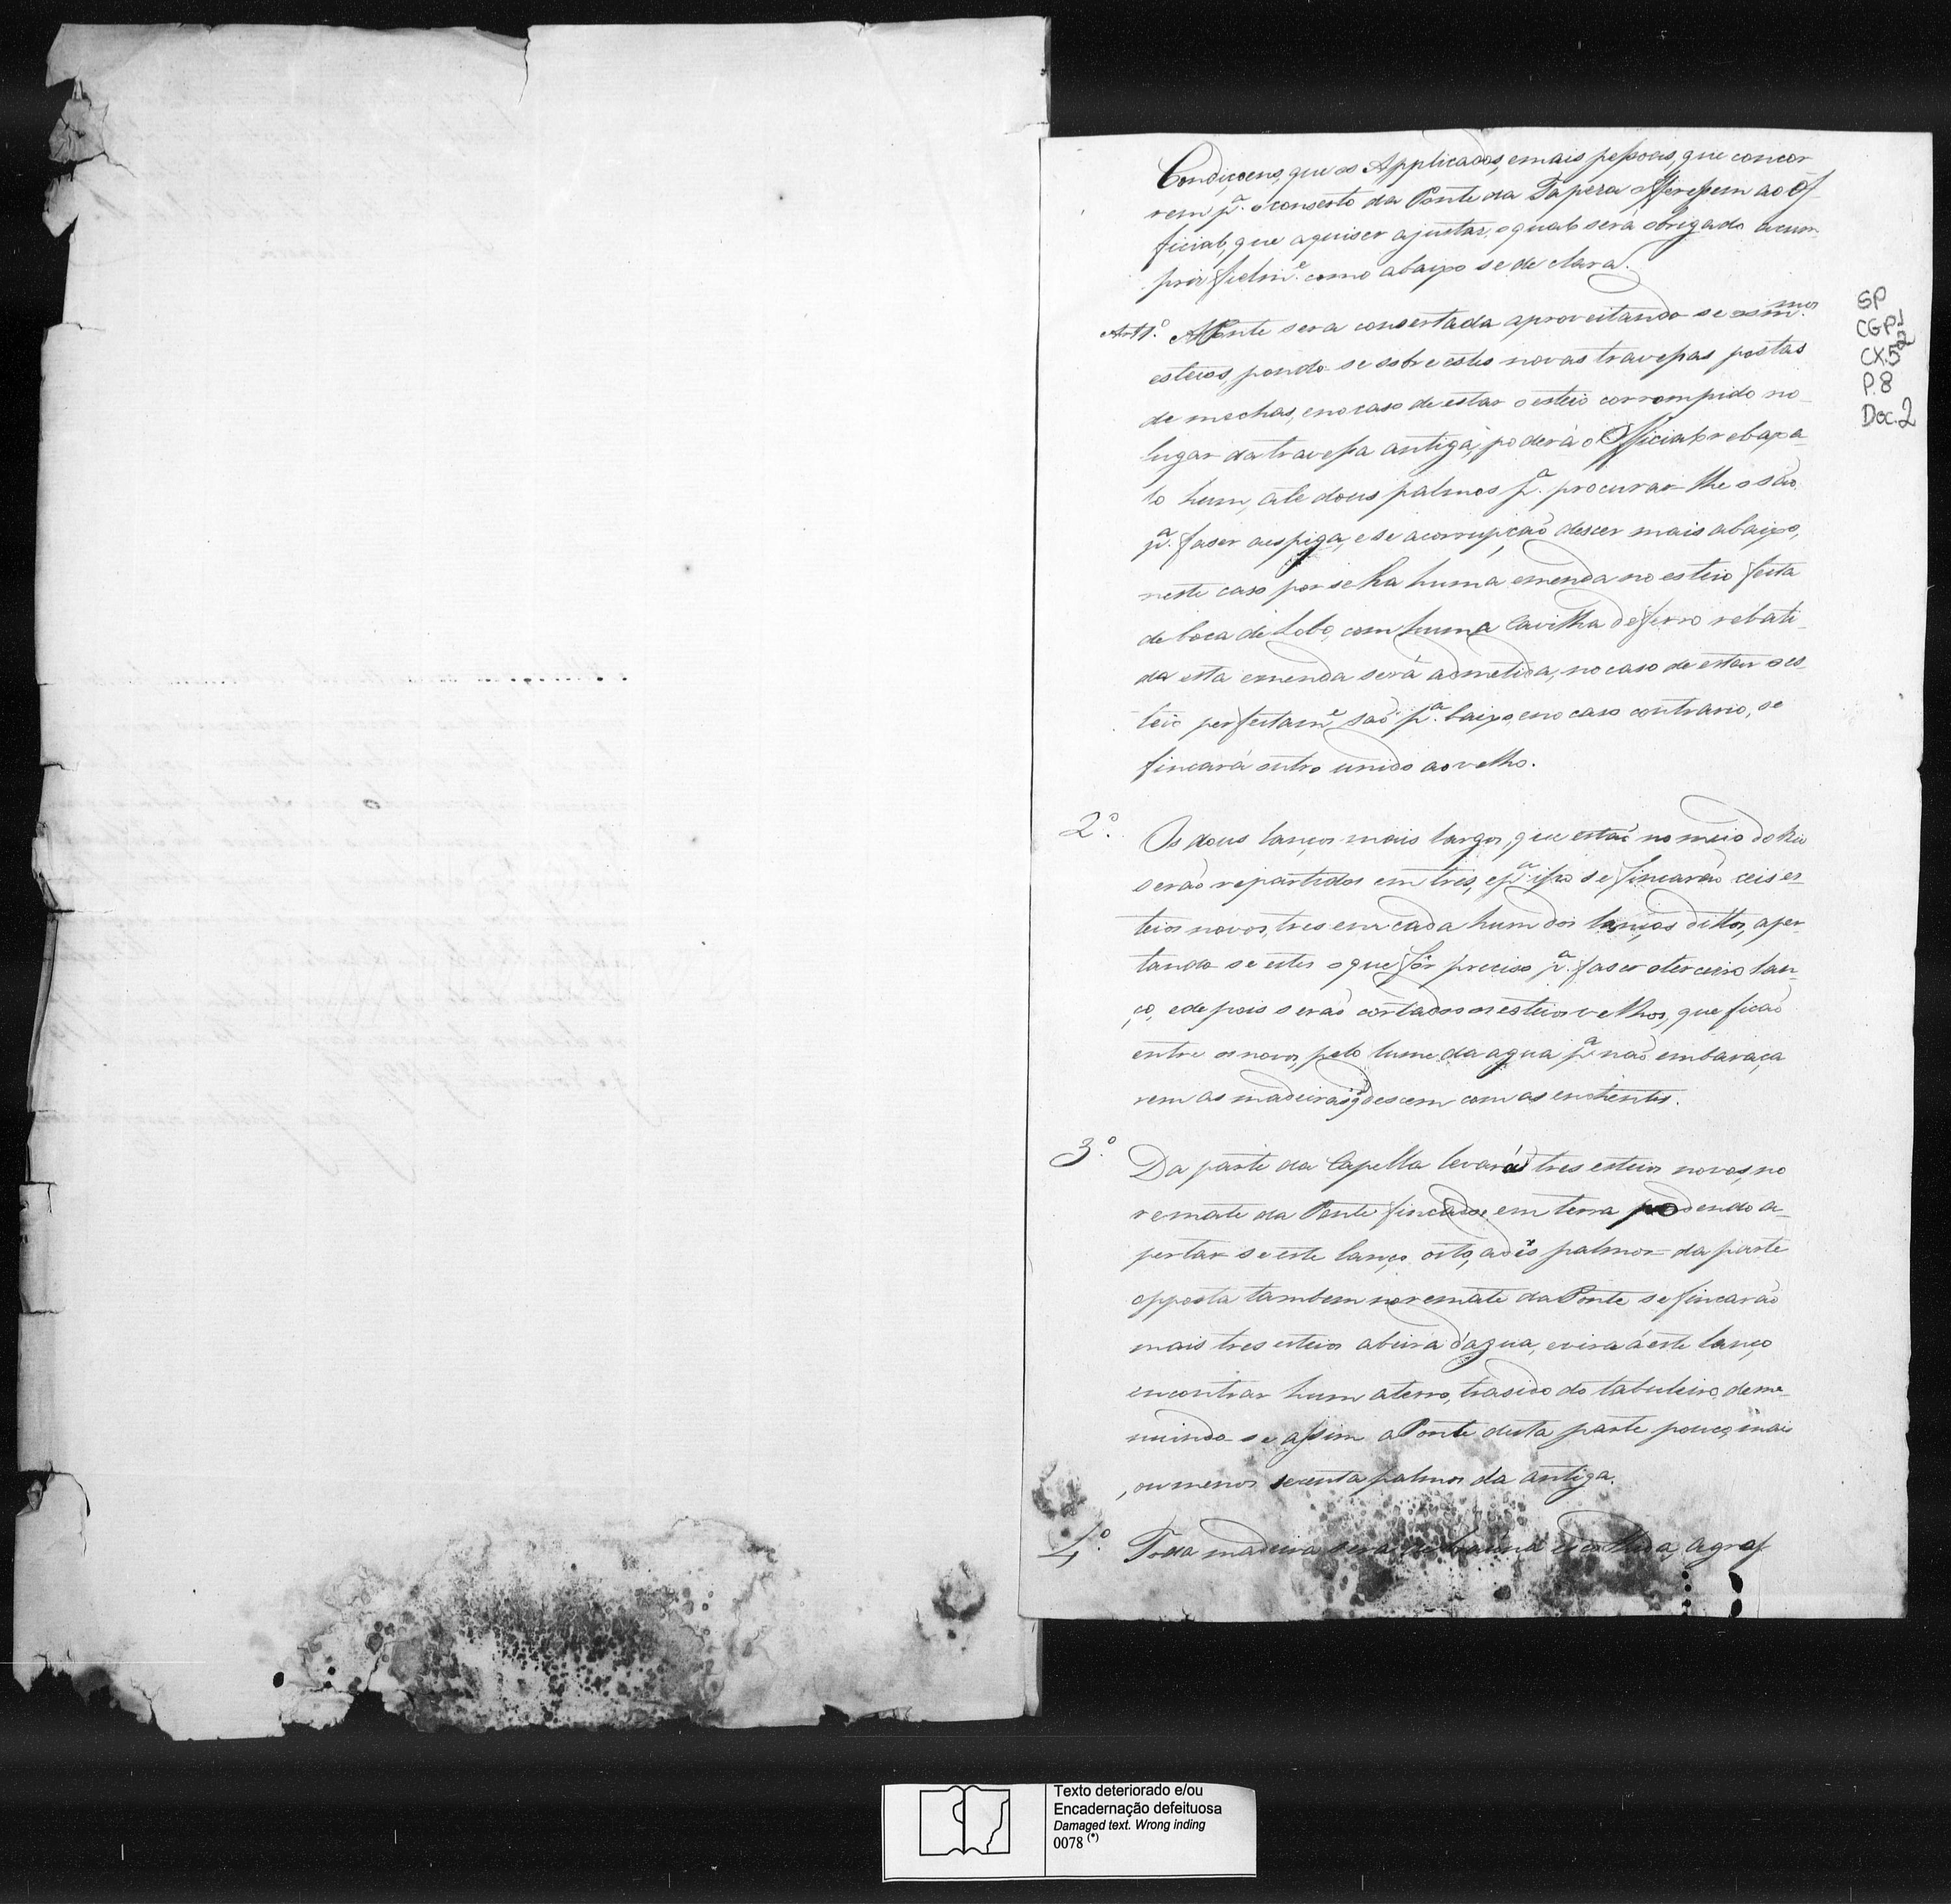 Condiçoens, que os Applicados, emais pessoas, que concor
rem pª. o conserto da Ponte da Tapera offeressem ao Of
ficial, que aquiser ajustar, oqual será obrigado acum
prir fielmᵉ. como abaixo se de clara.
Art 1º. A Ponte sera consertada aproveitando se osmmos
esteios, pondo-se sobre estes novas travessas postas
de mechas, enocaso de estar o esteio corrompido no
lugar datravessa antiga, poderá o Official rebaxa-
lo hum, até dous palmos pª. procurar-lhe o são
pª. faser aespiga, ese acorrupção descer mais abaixo,
neste caso por se ha huma emenda no esteio feita
de boca de Lobo, com huma Cavilha de ferro rebati-
da esta emenda será admetida, no caso de estar o es-
teio perfeitamᵉ são pª. baixo, eno caso contrario, se
fincará outro unido ao velho.
2º. Os dous lanços mais largos, que estão no meio do Rio
serão repartidos em tres, epª. isso se fincarão seis es-
teios novos, tres em cada hum dos lanços dittos, aper-
tando se estes oque fôr preciso pª. faser oterceiro lan-
ço, edepois serão cortados os esteios velhos, que ficão
entre os novos, pelo lume da agua pª. não embaraça
rem as madeiras q̃ descem com as enchentes.
3º. Da parte da Capella levará tres esteios novos, no
remate da Ponte fincados em terra podendo a-
pertar-se este lanço oito, a dês palmos = da parte
opposta tambem no remate da Ponte se fincarão
mais tres esteios abeira d'agua, evira á este lanço
encontrar hum aterro, trasido do tabuleiro, deme-
nuindo-se assim a Ponte desta parte pouco, mais
, ou menos secenta palmos da antiga.
4º. Toda madeira sera de braúna escolhida, agros
SP
CGP1
CX.52
P.8
Doc.2
Texto deteriorado e/ou
Encadernação defeituosa
Damaged text. Wrong inding
0078 (*)